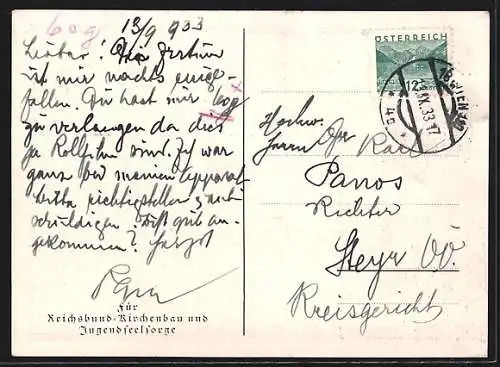 60 g 13/9 933
Lieber!
ist mir nachts einge-
fallen. Du hast mir 60g
zu verlangen da dies
ja Rollfilm sind. Ich war
ganz bei meinem Apparat
Bitte richtigstellen
schuldigen. Bist gut an-
gekommen?
Für
Reichsbund-Kirchenbau und
Jugendseelsorge
ÖSTERREICH
12
WIEN
Hochw.
Herrn
Panos
Richter
Steyr OÖ.
Kreisgericht